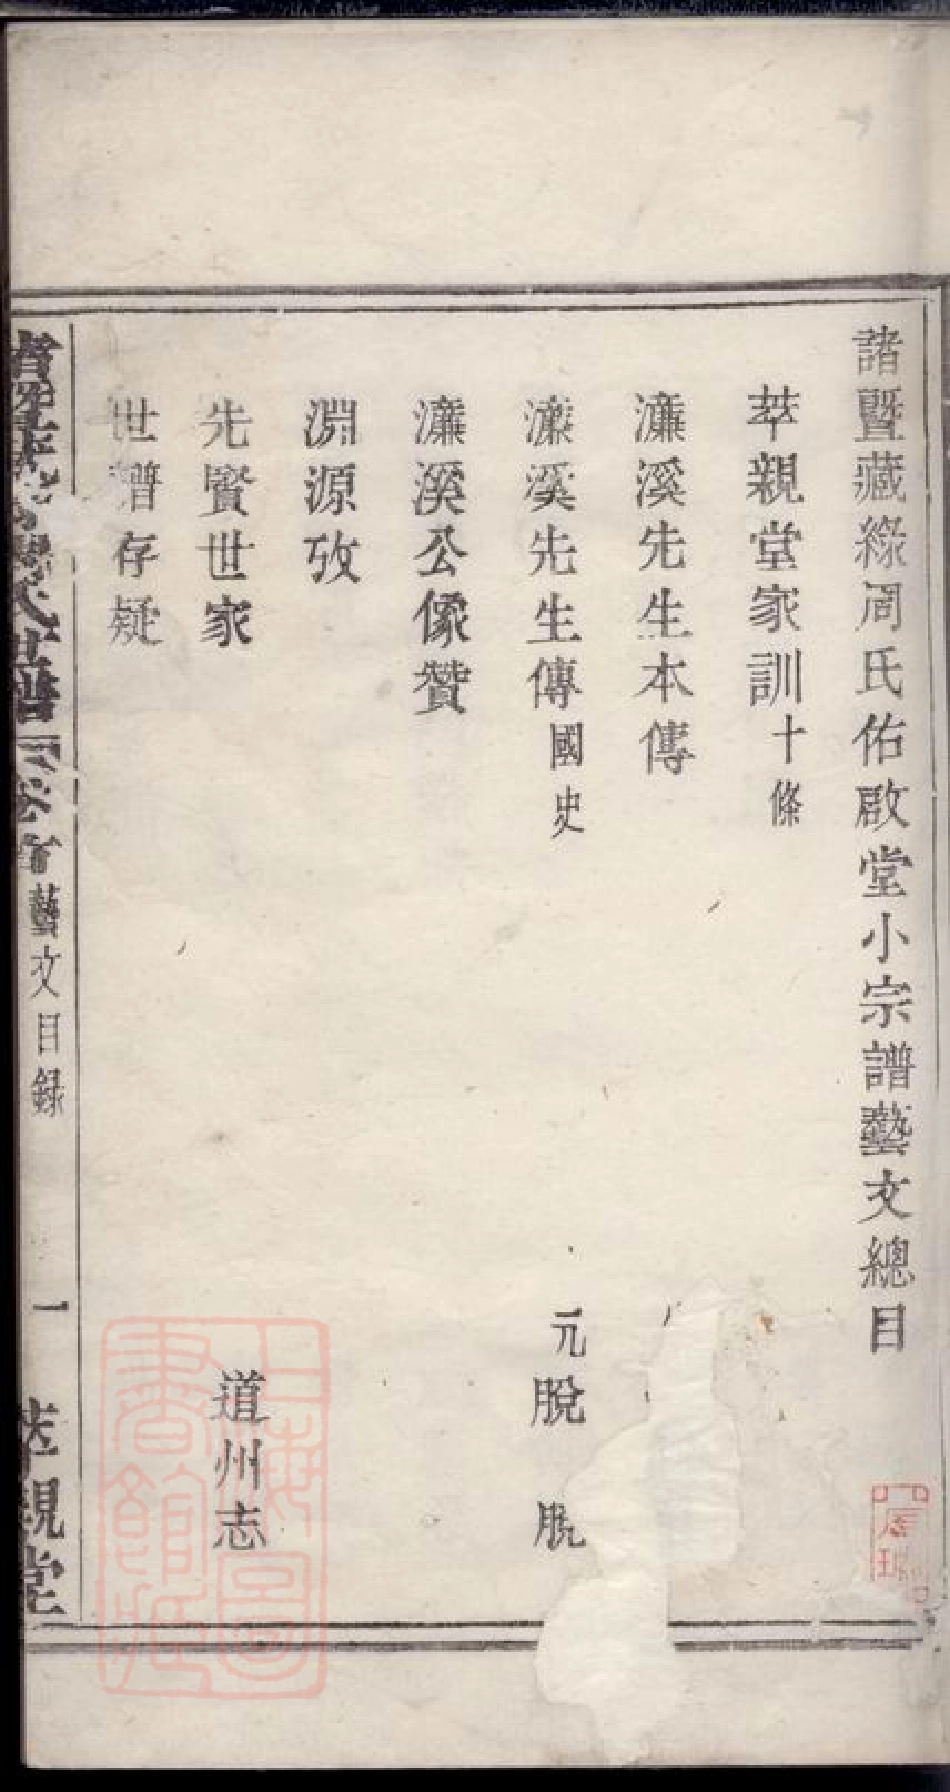 諸暨藏綠周氏佑啟堂小宗譜藝文總目
萃親堂家訓十條
濂溪先生本傳
濂溪先生傳國史 元脫脫
濂溪公像贊
淵源攷
先賢世家 道州志
世譜存疑
藝文目録 一 萃親堂
上海圖書館藏